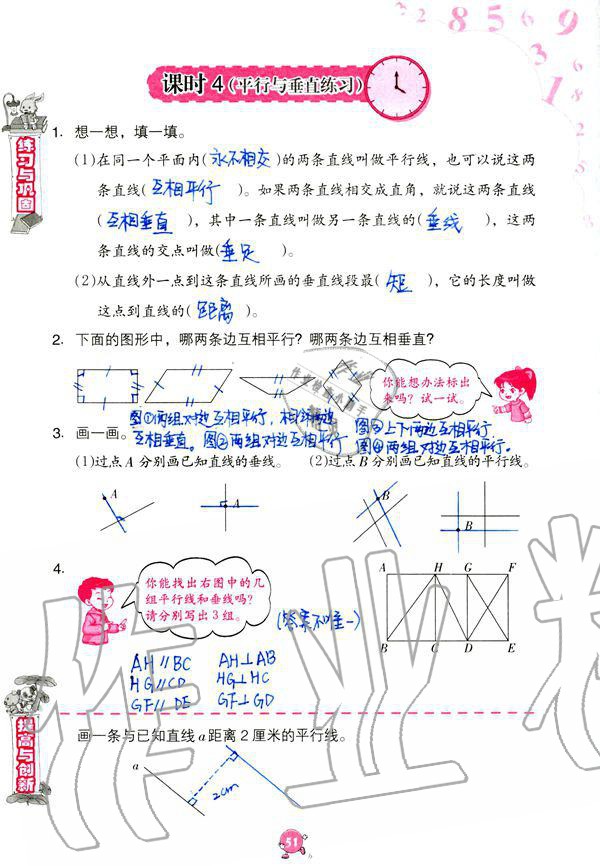 3 2 8 5 6 9
课时 4（平行与垂直练习）
练习与巩固
1. 想一想，填一填。
(1)在同一个平面内(永不相交)的两条直线叫做平行线，也可以说这两
条直线(互相平行)。如果两条直线相交成直角，就说这两条直线
(互相垂直)，其中一条直线叫做另一条直线的(垂线)，这两
条直线的交点叫做(垂足)。
(2)从直线外一点到这条直线所画的垂直线段最(短)，它的长度叫做
这点到直线的(距离)。
2. 下面的图形中，哪两条边互相平行？哪两条边互相垂直？
你能想办法标出
来吗？试一试。
图①两组对边互相平行，相邻两边
互相垂直。图②两组对边互相平行
图③上下两边互相平行
图④两组对边互相平行。
3. 画一画。
(1)过点A分别画已知直线的垂线。 (2)过点B分别画已知直线的平行线。
A A B B
4.
你能找出右图中的几
组平行线和垂线吗？
请分别写出3组。
(答案不唯一)
A H G F
B C D E
AH∥BC AH⊥AB
HG∥CD HG⊥HC
GF∥DE GF⊥GD
提高与创新
画一条与已知直线a距离2厘米的平行线。
a
2cm
51
作业精